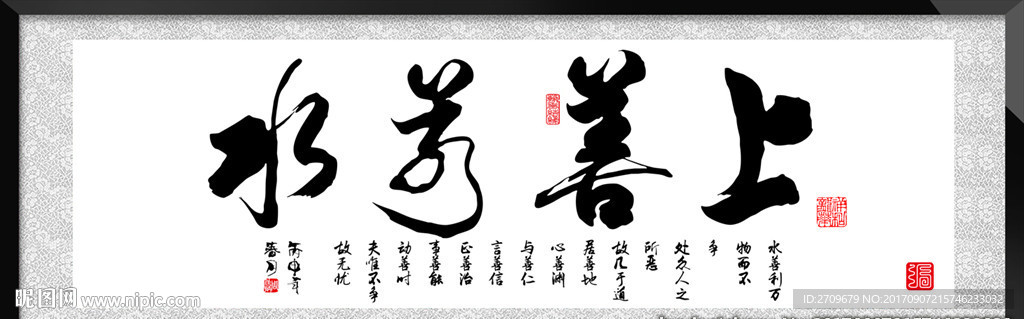 上善若水
水善利万
物而不
争
处众人之
所恶
故几于道
居善地
心善渊
与善仁
言善信
正善治
事善能
动善时
夫唯不争
故无忧
丙申年
昵图网 www.nipic.com
ID:2709679 NO:20170907215746233032